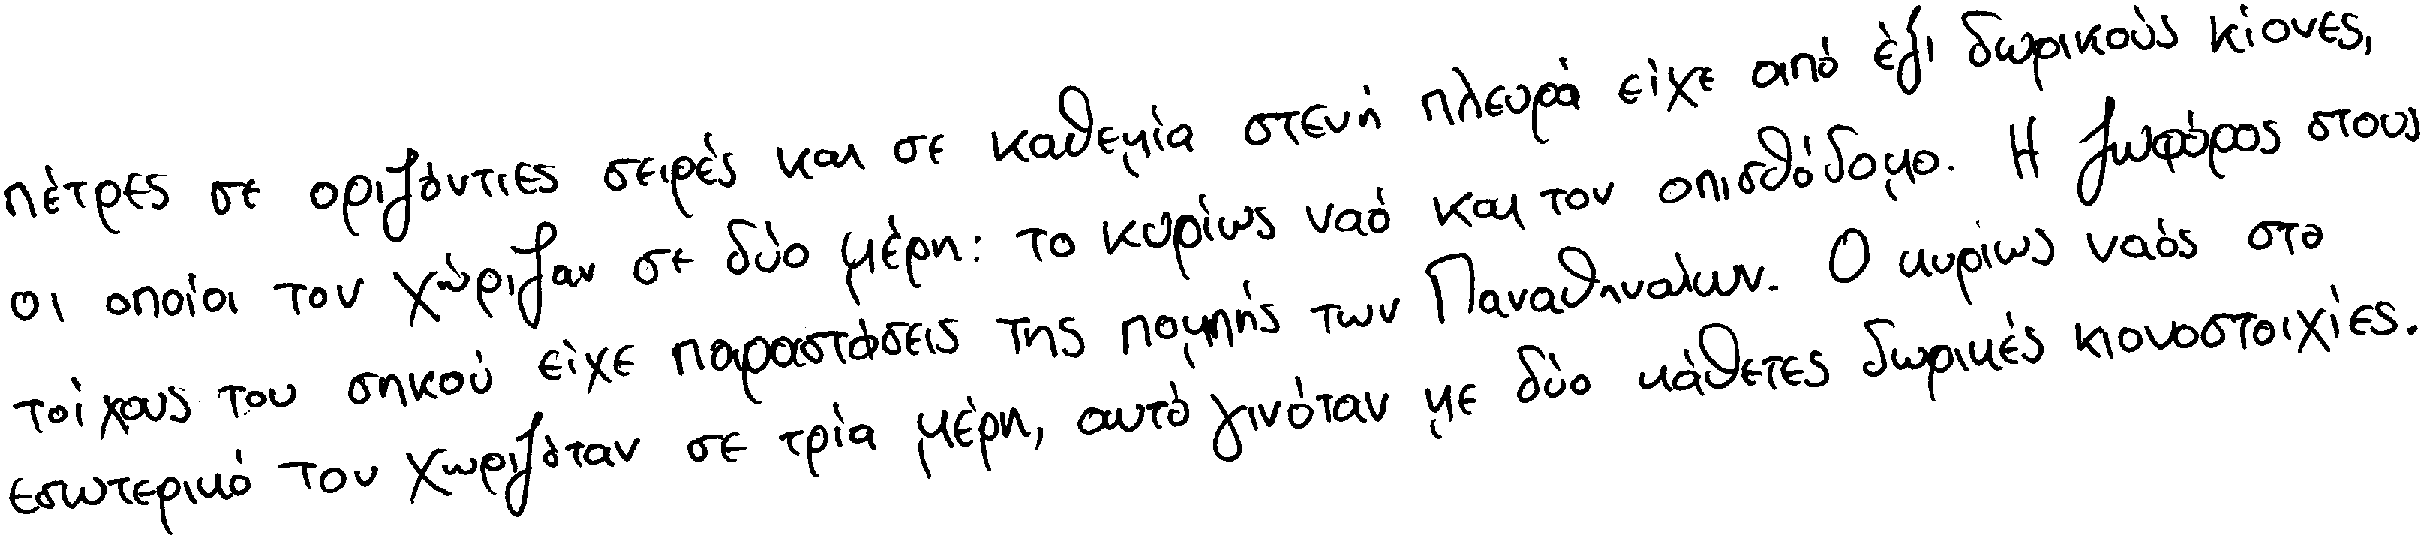 πέτρες σε οριζόντιες σειρές και σε καθεμία στενή πλευρά είχε από έξι δωρικούς κίονες,
οι οποίοι τον χώριζαν σε δύο μέρη: το κυρίως ναό και τον οπισθόδομο. Η ζωφόρος στους
τοίχους του σηκού είχε παραστάσεις της πομπής των Παναθηναίων. Ο κυρίως ναός στο
εσωτερικό του χωριζόταν σε τρία μέρη, αυτό γινόταν με δύο κάθετες δωρικές κιονοστοιχίες.